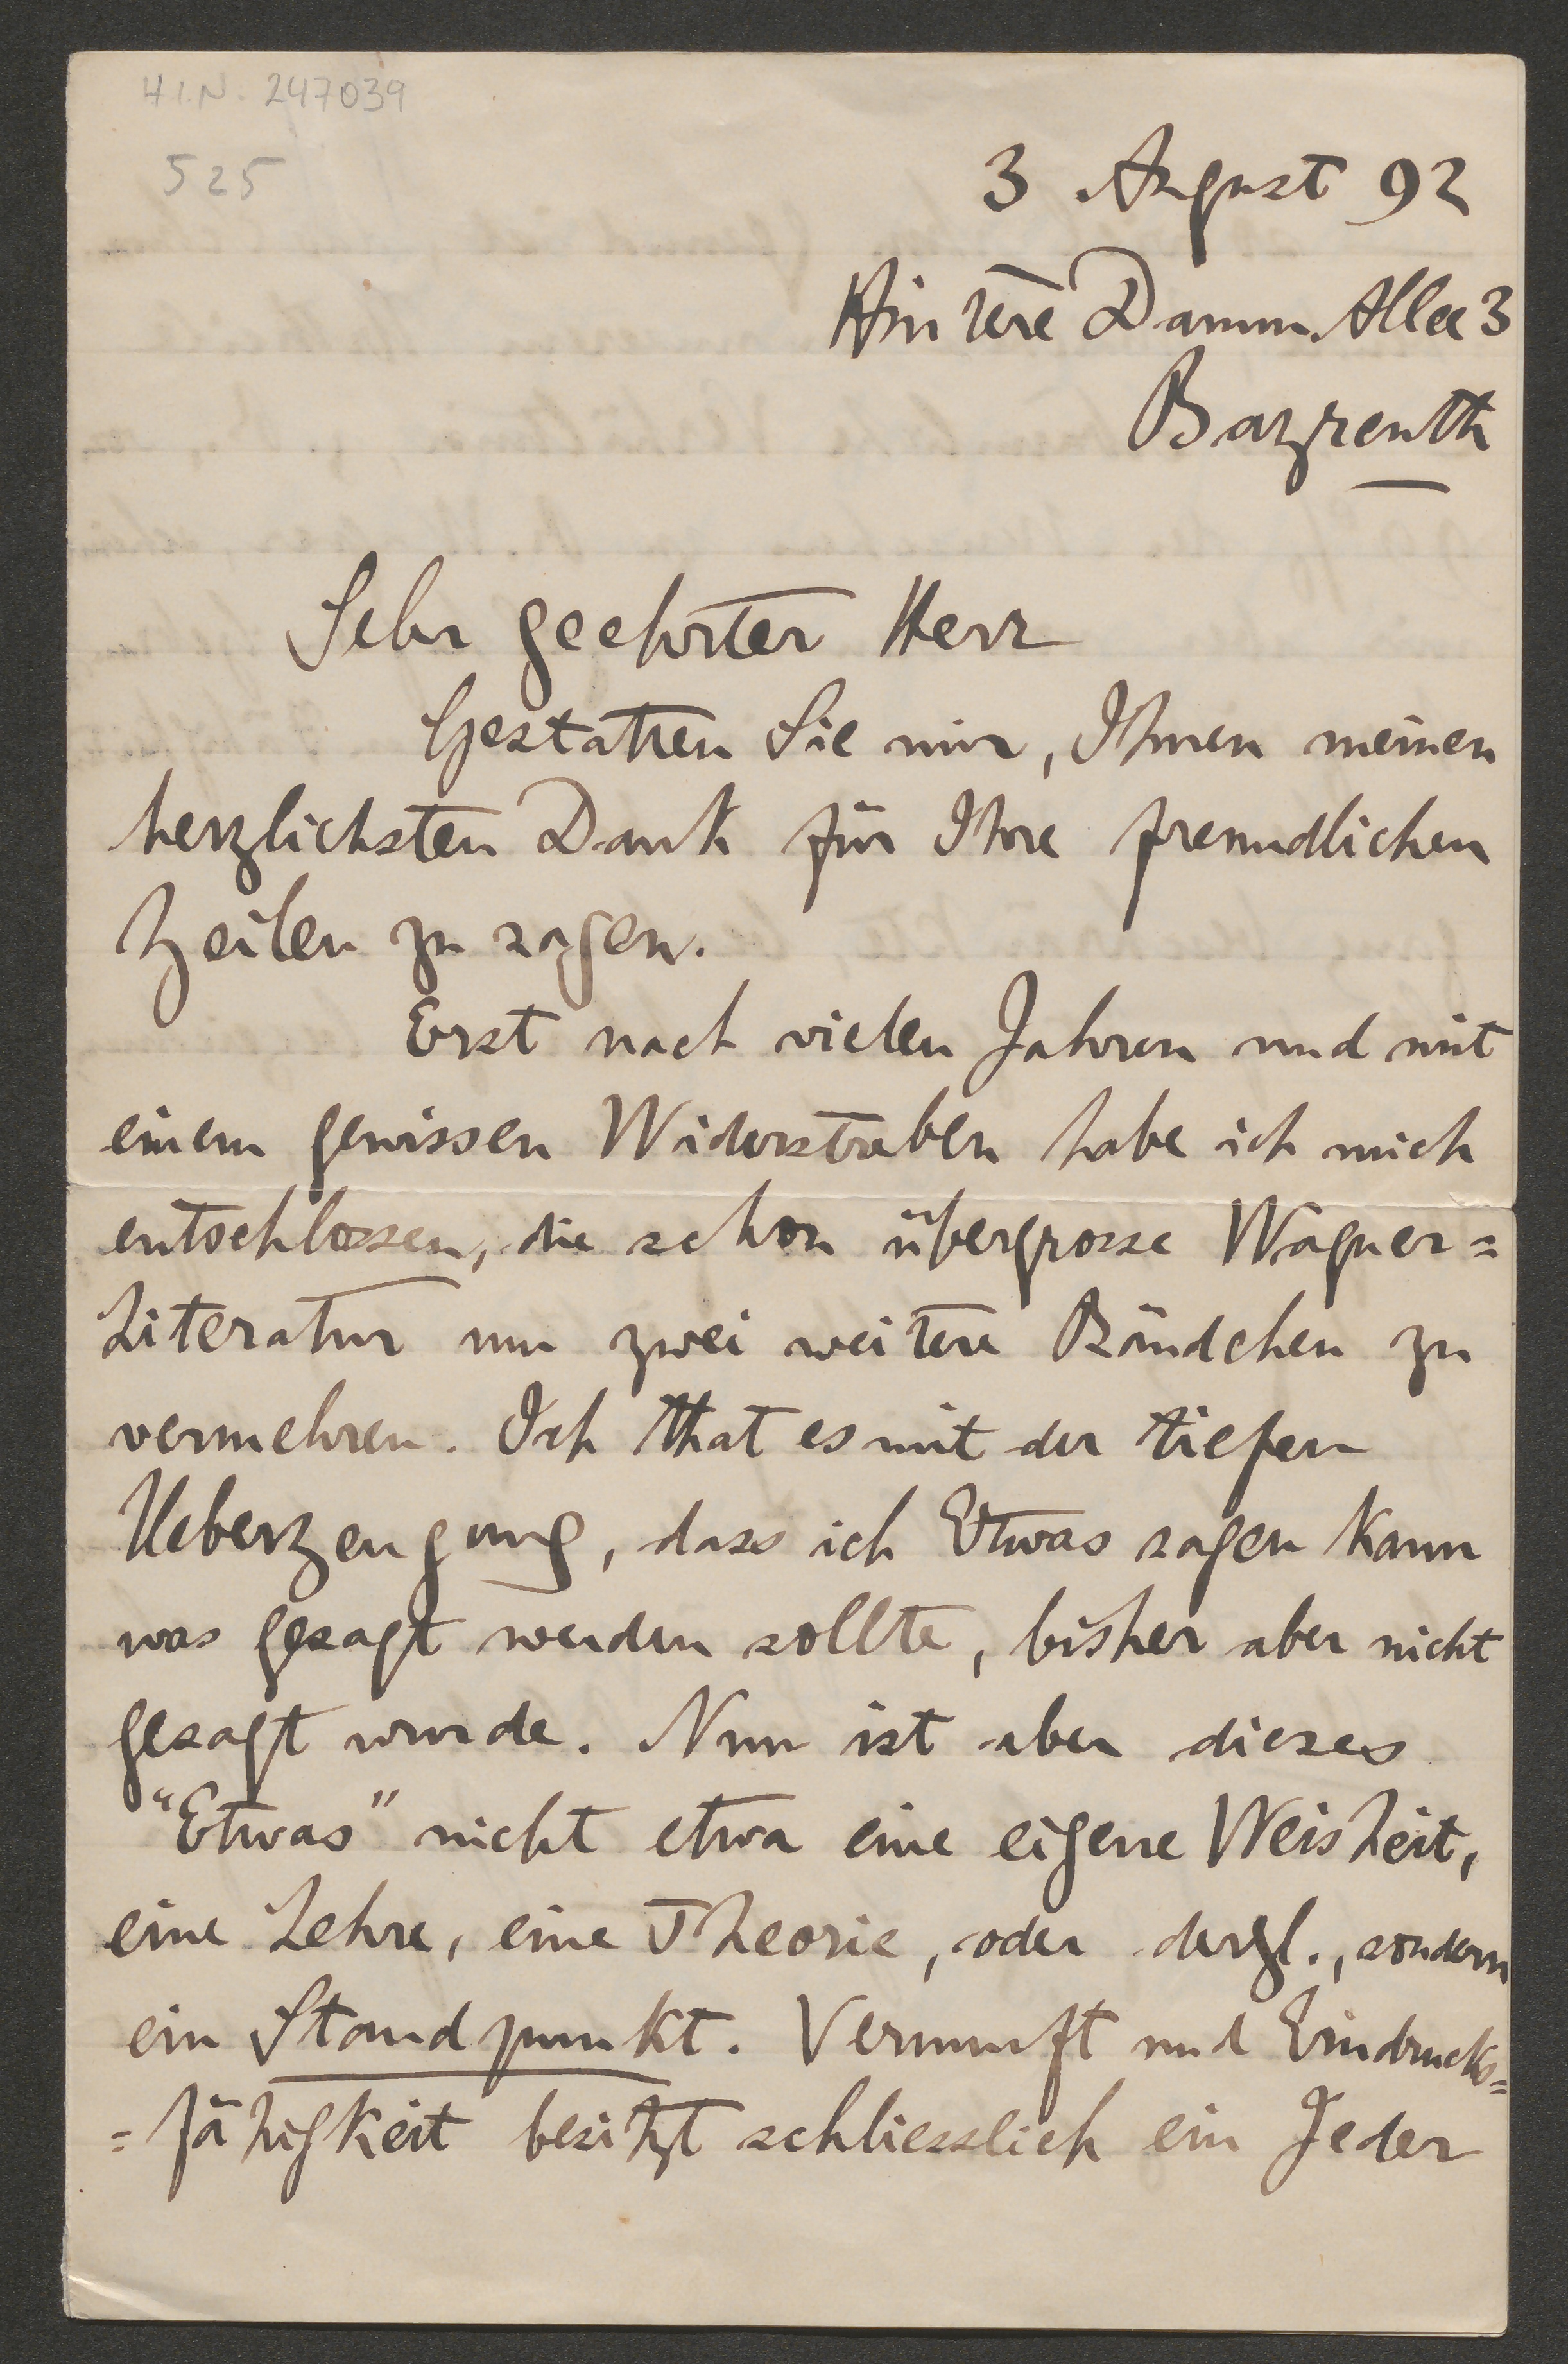 H.I.N. 247039
525
3 August 92
Hintere Damm Allee 3
Bayreuth
Sehr geehrter Herr
Gestatten Sie mir, Ihnen meinen
herzlichsten Dank für Ihre freundlichen
Zeilen zu sagen.
Erst nach vielen Jahren und mit
einem gewissen Widerstreben habe ich mich
entschlossen, die schon übergrosse Wagner=
Literatur um zwei weitere Bändchen zu
vermehren. Ich that es mit der tiefen
Ueberzeugung, dass ich Etwas sagen kann
was gesagt werden sollte, bisher aber nicht
gesagt wurde. Nun ist aber dieses
"Etwas" nicht etwa eine eigene Weisheit,
eine Lehre, eine Theorie, oder dergl., sondern
ein Standpunkt. Vernunft und Eindrucks=
=fähigkeit besitzt schliesslich ein Jeder